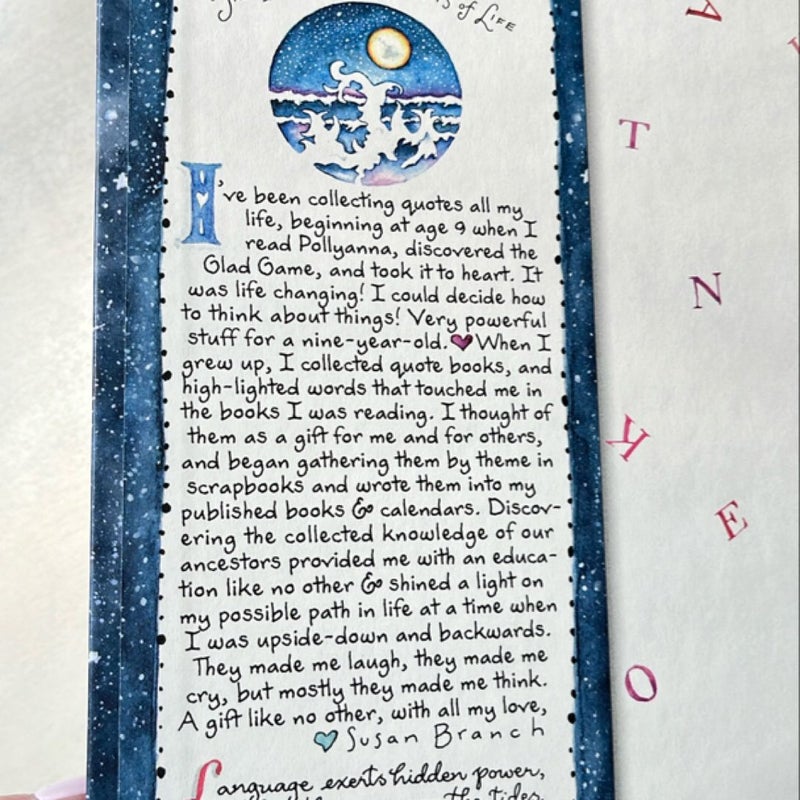 of LIFE
I've been collecting quotes all my
life, beginning at age 9 when I
read Pollyanna, discovered the
Glad Game, and took it to heart. It
was life changing! I could decide how
to think about things! Very powerful
stuff for a nine-year-old. When I
grew up, I collected quote books, and
high-lighted words that touched me in
the books I was reading. I thought of
them as a gift for me and for others,
and began gathering them by theme in
scrapbooks and wrote them into my
published books & calendars. Discov-
ering the collected knowledge of our
ancestors provided me with an educa-
tion like no other & shined a light on
my possible path in life at a time when
I was upside-down and backwards.
They made me laugh, they made me
cry, but mostly they made me think.
A gift like no other, with all my love,
Susan Branch
Language exerts hidden power,
the tides
A
T
N
K
E
O